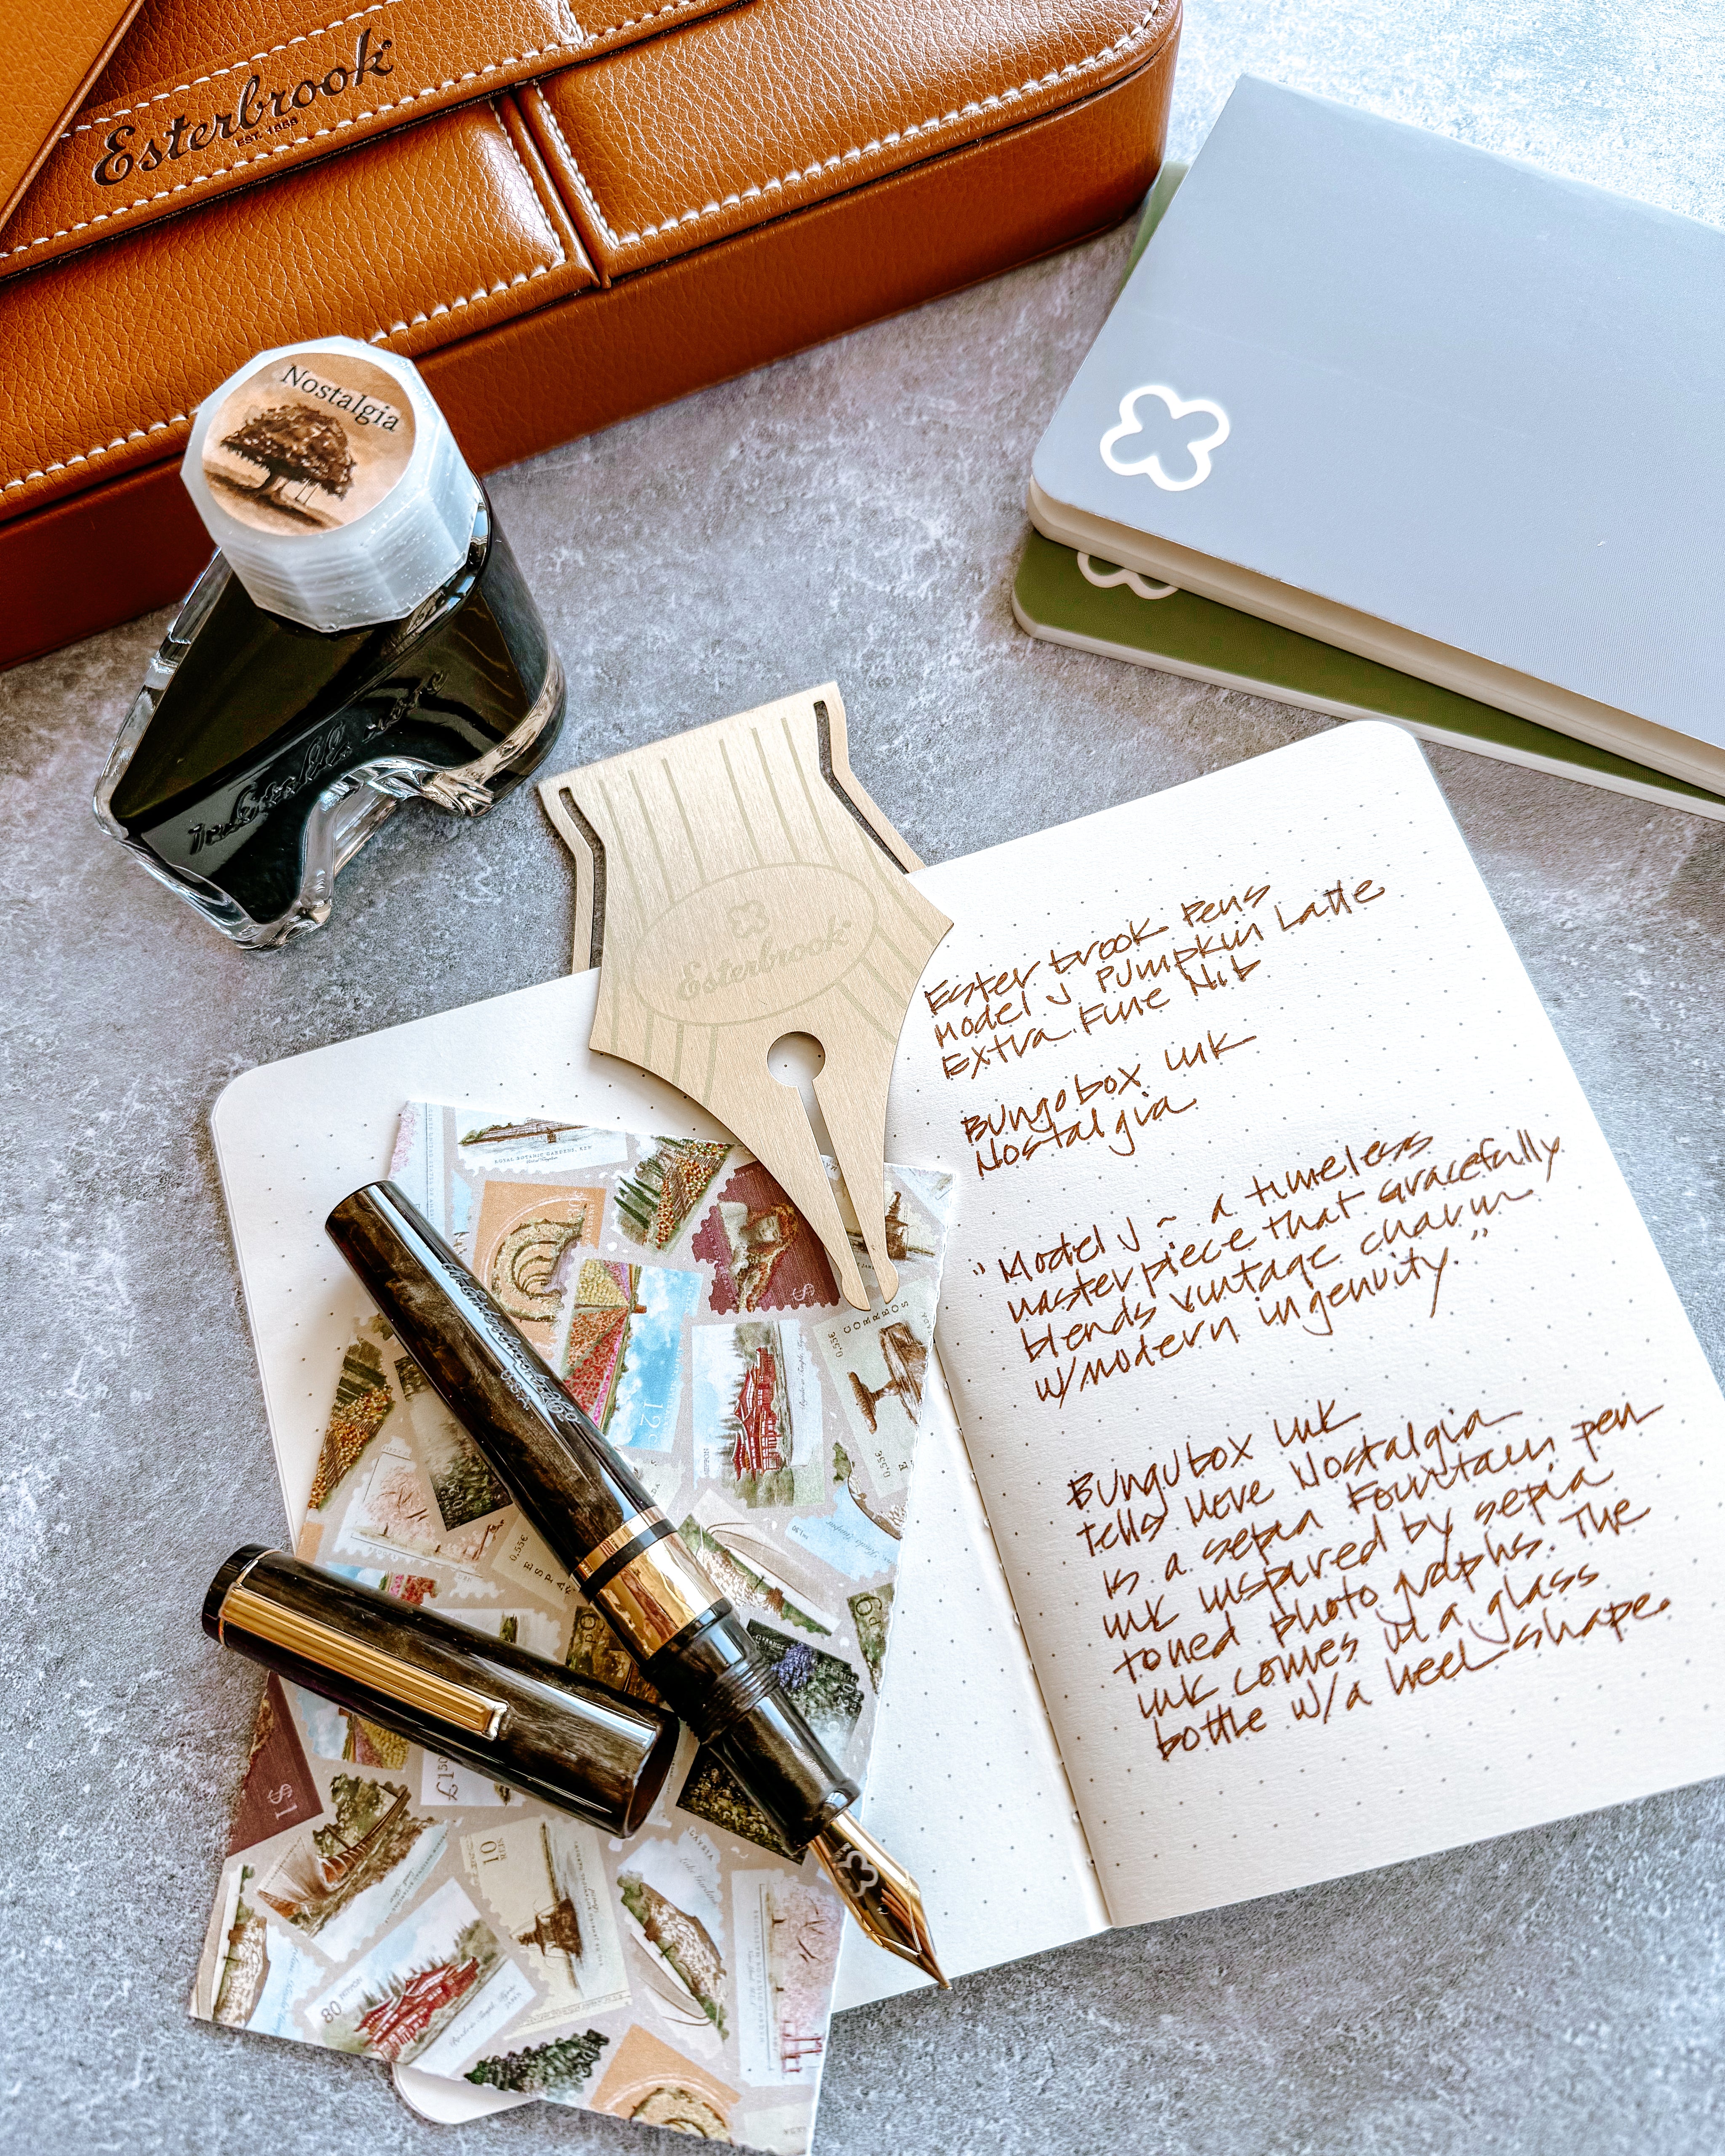 Esterbrook®
EST. 1858
Nostalgia
Esterbrook®
Esterbrook Pens
Model J Pumpkin Latte
Extra Fine Nib
Bungobox ink
Nostalgia
"Model J ~ a timeless
masterpiece that gracefully
blends vintage charm
w/modern ingenuity."
Bungubox ink
tells Neve Nostalgia
is a sepia Fountain pen
ink inspired by sepia
toned photographs. The
ink comes in a glass
bottle w/a heel shape.
U.S.A.
ROYAL BOTANIC GARDENS, KEW
12c
CORREOS
0,55€
0,55€
0,55€
ESPAÑA
£1.50
1$
10
80